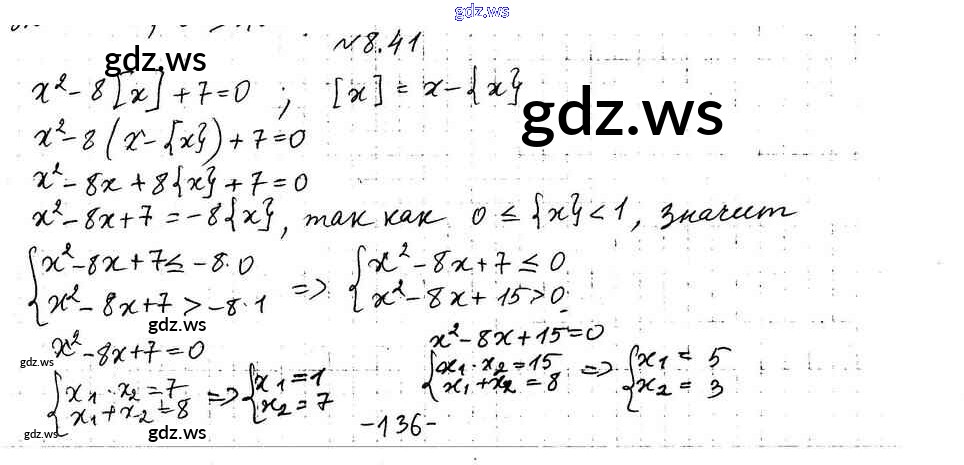 gdz.ws
№8.41
gdz.ws
x² - 8[x] + 7 = 0 ; [x] = x - {x}
gdz.ws
x² - 8(x - {x}) + 7 = 0
x² - 8x + 8{x} + 7 = 0
x² - 8x + 7 = -8{x}, так как 0 ≤ {x} < 1, значит
{x² - 8x + 7 ≤ -8·0 => {x² - 8x + 7 ≤ 0
x² - 8x + 7 > -8·1 x² - 8x + 15 > 0
gdz.ws
x² - 8x + 7 = 0 x² - 8x + 15 = 0
gdz.ws
{x₁ · x₂ = 7 => {x₁ = 1 {x₁ · x₂ = 15 => {x₁ = 5
x₁ + x₂ = 8 x₂ = 7 x₁ + x₂ = 8 x₂ = 3
gdz.ws gdz.ws
-136-